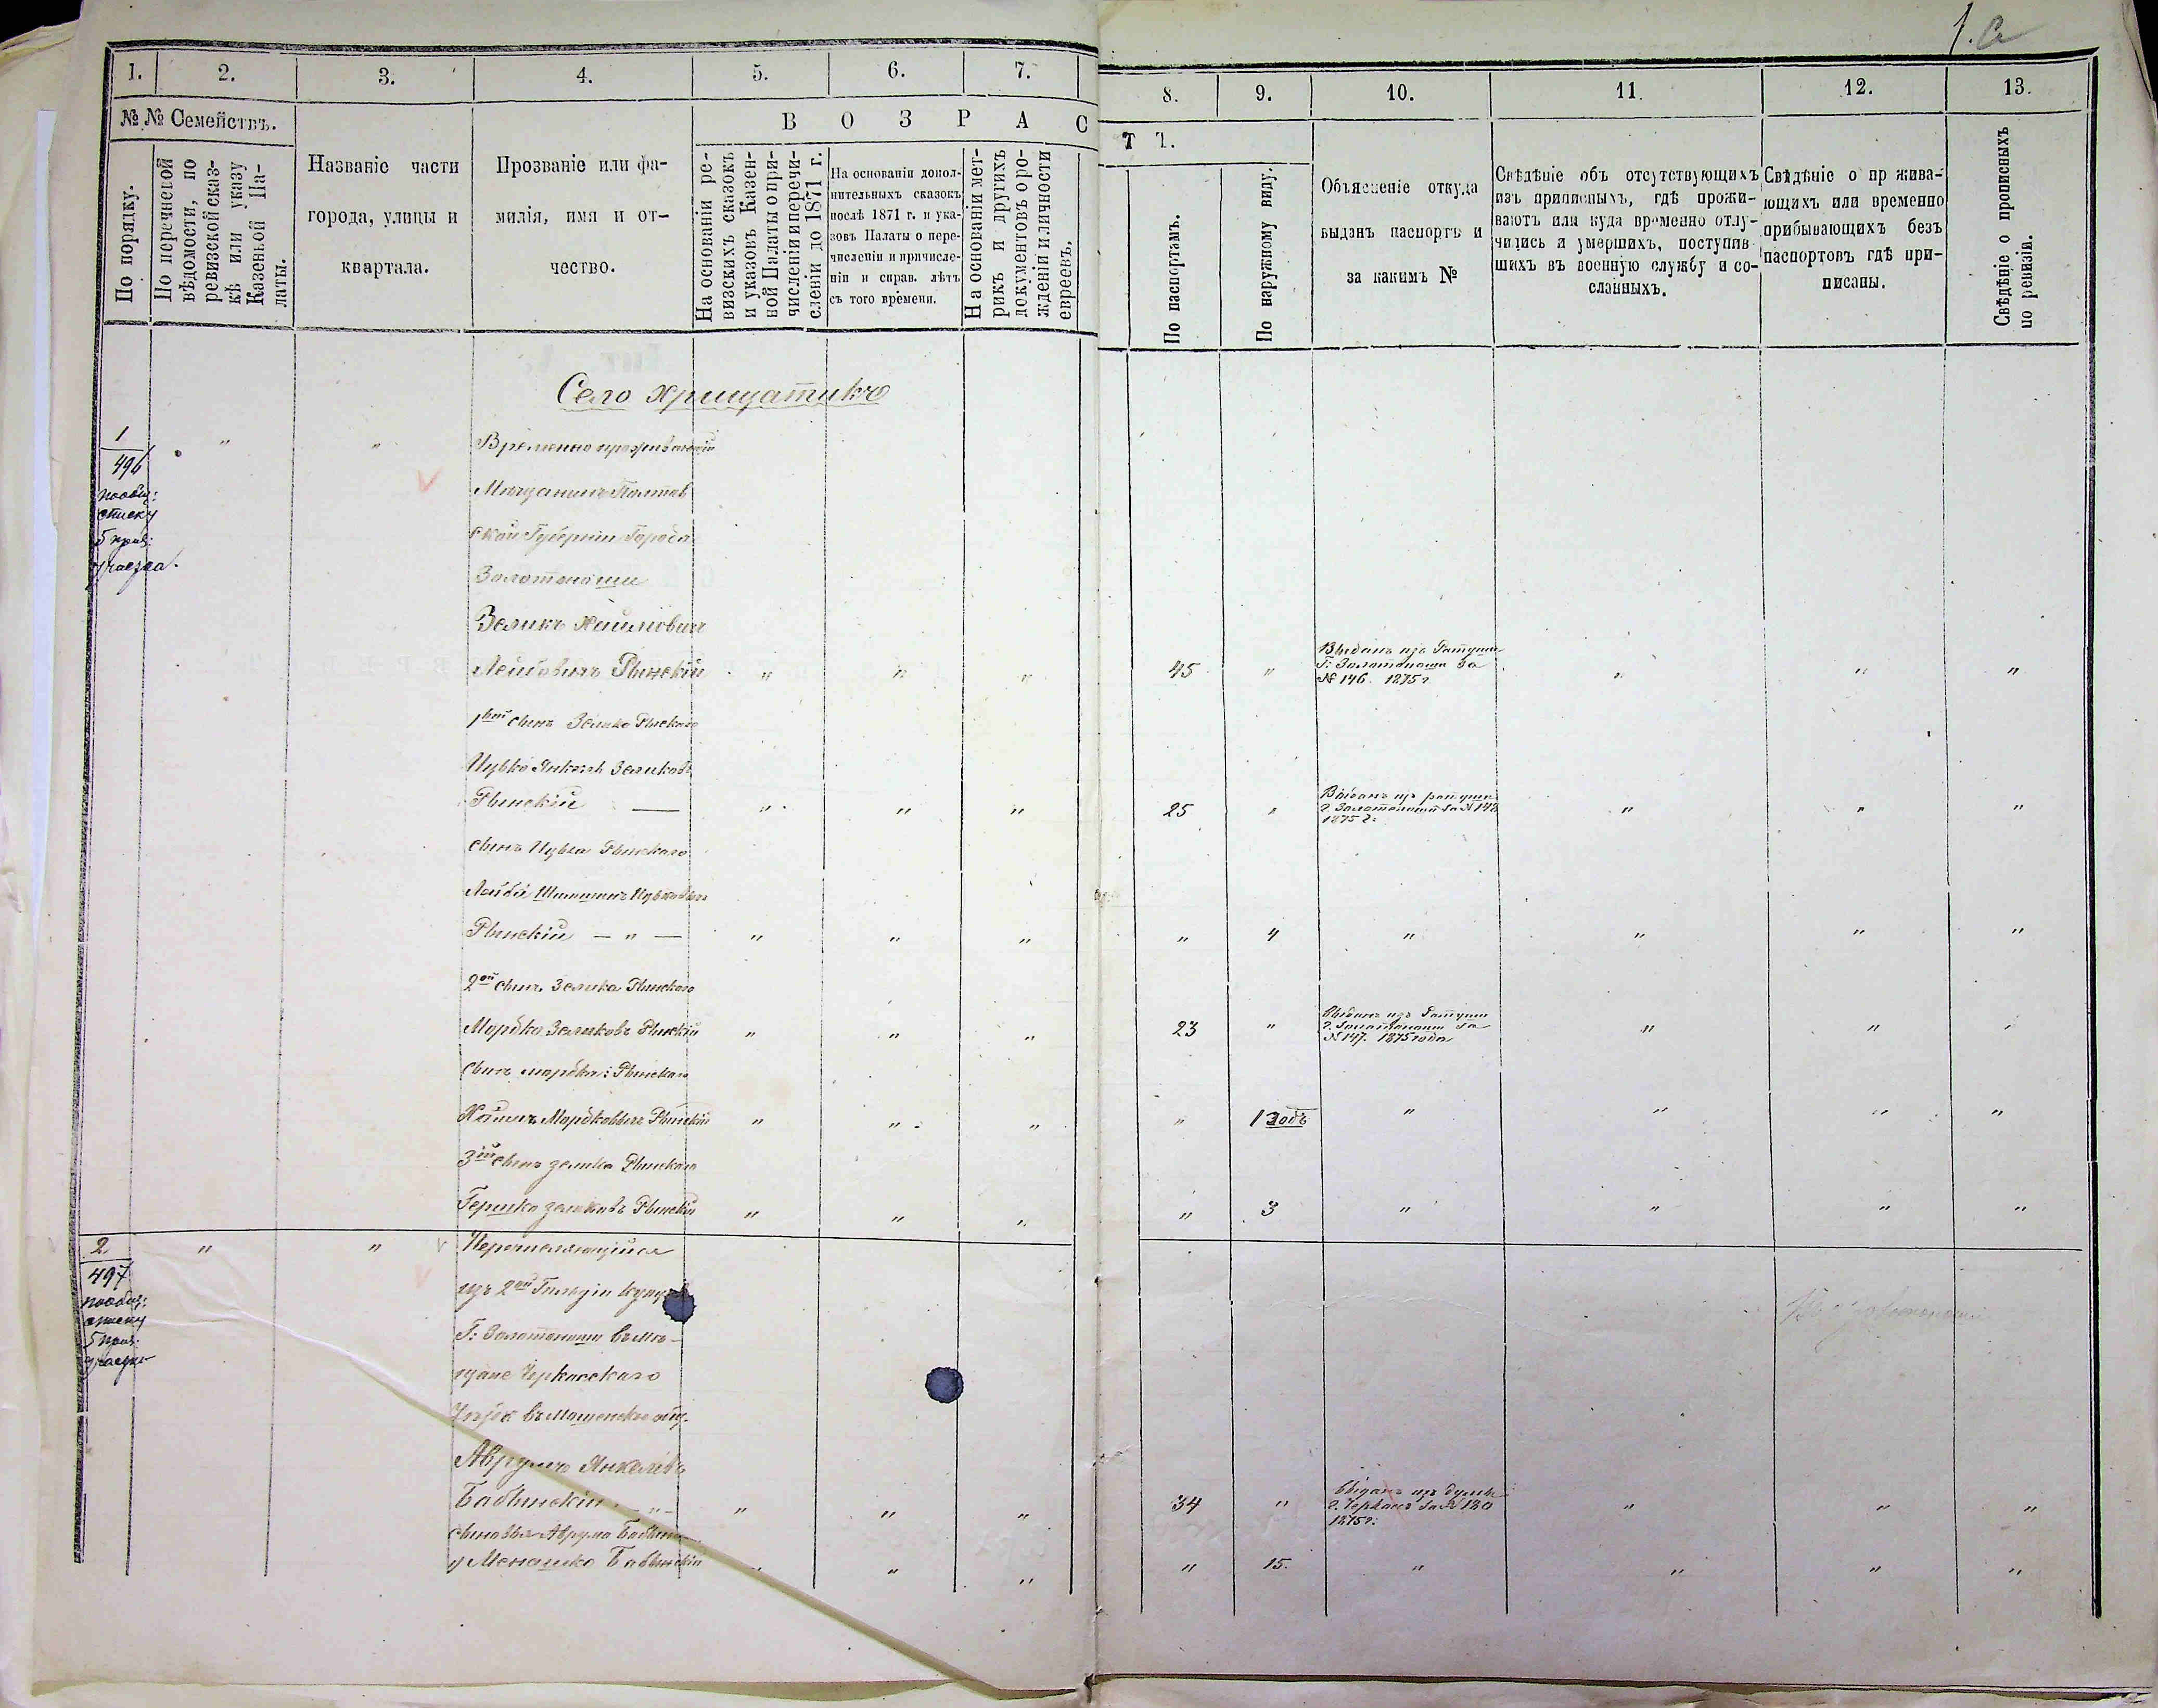 1.
2.
3.
4.
5.
6.
7.
8.
9.
10.
11.
12.
13.
№ № Семействъ.
В О З Р А С
Т Ъ.
По порядку.
По перечневой
вѣдомости, по
ревизской сказ-
кѣ или указу
Казеньой Па-
латы.
Названіе части
города, улицы и
квартала.
Прозваніе или фа-
милія, имя и от-
чество.
На основаніи ре-
визскихъ сказокъ
и указовъ Казен-
ной Палаты о при-
численіи и перечи-
сленіи до 1871 г.
На основаніи допол-
нительныхъ сказокъ
послѣ 1871 г. и ука-
зовъ Палаты о пере-
численіи и причисле-
ніи и справ. лѣтъ
съ того времени.
На основаніи мет-
рикъ и другихъ
документовъ о ро-
жденіи и личности
евреевъ.
По паспортамъ.
По наружному виду.
Объясненіе откуда
выданъ паспортъ и
за какимъ №
Свѣдѣніе объ отсутствующихъ
изъ приписныхъ, гдѣ прожи-
ваютъ или куда временно отлу-
чились и умершихъ, поступив-
шихъ въ военную службу и со-
сланныхъ.
Свѣдѣніе о пр жива-
ющихъ или временно
прибывающихъ безъ
паспортовъ гдѣ при-
писаны.
Свѣдѣніе о прописныхъ
по ревизіи.
Село Хрищатикъ
1 " " Временно проживающій
496
пообщ:
списку
5 приз:
участка.
Мѣщанинъ Полтав
ской Губерніи Города
Золотоноши
Зеликъ Хаимовичъ
Лейбовичъ Рынскій " " " 45 " Выданъ изъ Ратуши
Г: Золотоноши за
№ 146. 1875 г
" " "
1вый сынъ Зелика Рынскаго
Ицько Янкель Зеликовъ
Рынскій — " " " 25 " Выданъ изъ ратуши
г. Золотоноши за № 148
1875 г:
" " "
сынъ Ицька Рынскаго
Лейба Ицьковичъ
Рынскій — " — " " " " 4 " " " "
2ой сынъ Зелика Рынскаго
Мордко Зеликовъ Рынскій " " " 23 " Выданъ изъ Ратуши
г. Золотоноши за
№ 147. 1875 года
" " "
сынъ мордка: Рынскаго
Хаимъ Мордковичъ Рынскій " " " " 1 годъ " " " "
3ій сынъ зелика Рынскаго
Гершко зеликовъ Рынскій " " " " 3 " " " "
2 " " Перечисляющійся
497
пообщ:
списку
5 приз:
участка
изъ 2ой Гильдіи купцовъ
Г: Золотоноши въ мѣ-
щане Черкасскаго
Уѣзда въ
Аврумъ Янкелевъ
Бабынскій — " — " " " 34 " Выданъ изъ думы
г. Черкасъ за № 120
1875 г:
" " "
сыновья Аврума
Менашко " " " " 15. " " " "